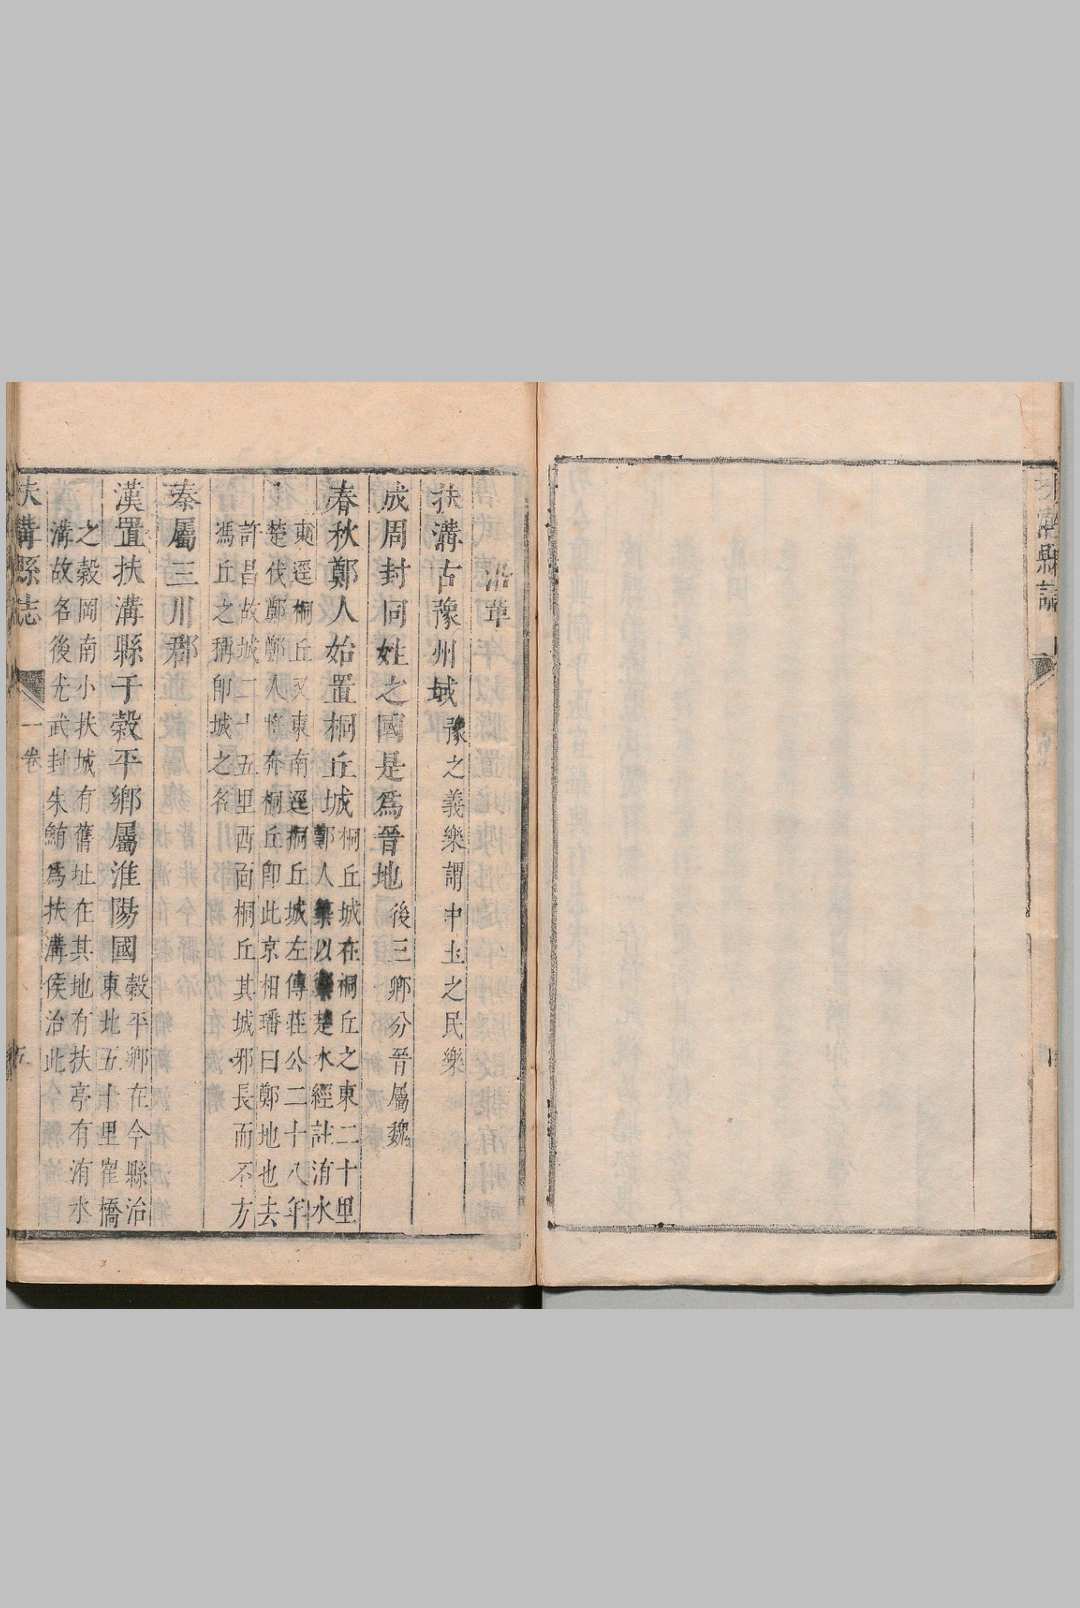 扶溝縣誌
沿革
扶溝古豫州域豫之義樂謂中土之民樂
成周封同姓之國是爲晉地後三卿分晉屬魏
春秋鄭人始置桐丘城桐丘城在桐丘之東二十里
鄭人築以禦楚水經註洧水
東逕桐丘又東南逕桐丘城左傳莊公二十八年
楚伐鄭鄭人將奔桐丘卽此京相璠曰鄭地也去
許昌故城二十五里西面桐丘其城邪長而不方
馮丘之稱卽城之名
秦屬三川郡
漢置扶溝縣于穀平鄉屬淮陽國穀平鄉在今縣治
東北五十里寉橋
之穀岡南小扶城有舊址在其地有扶亭有洧水
溝故名後光武封朱鮪爲扶溝侯治此
扶溝縣志
一卷
五